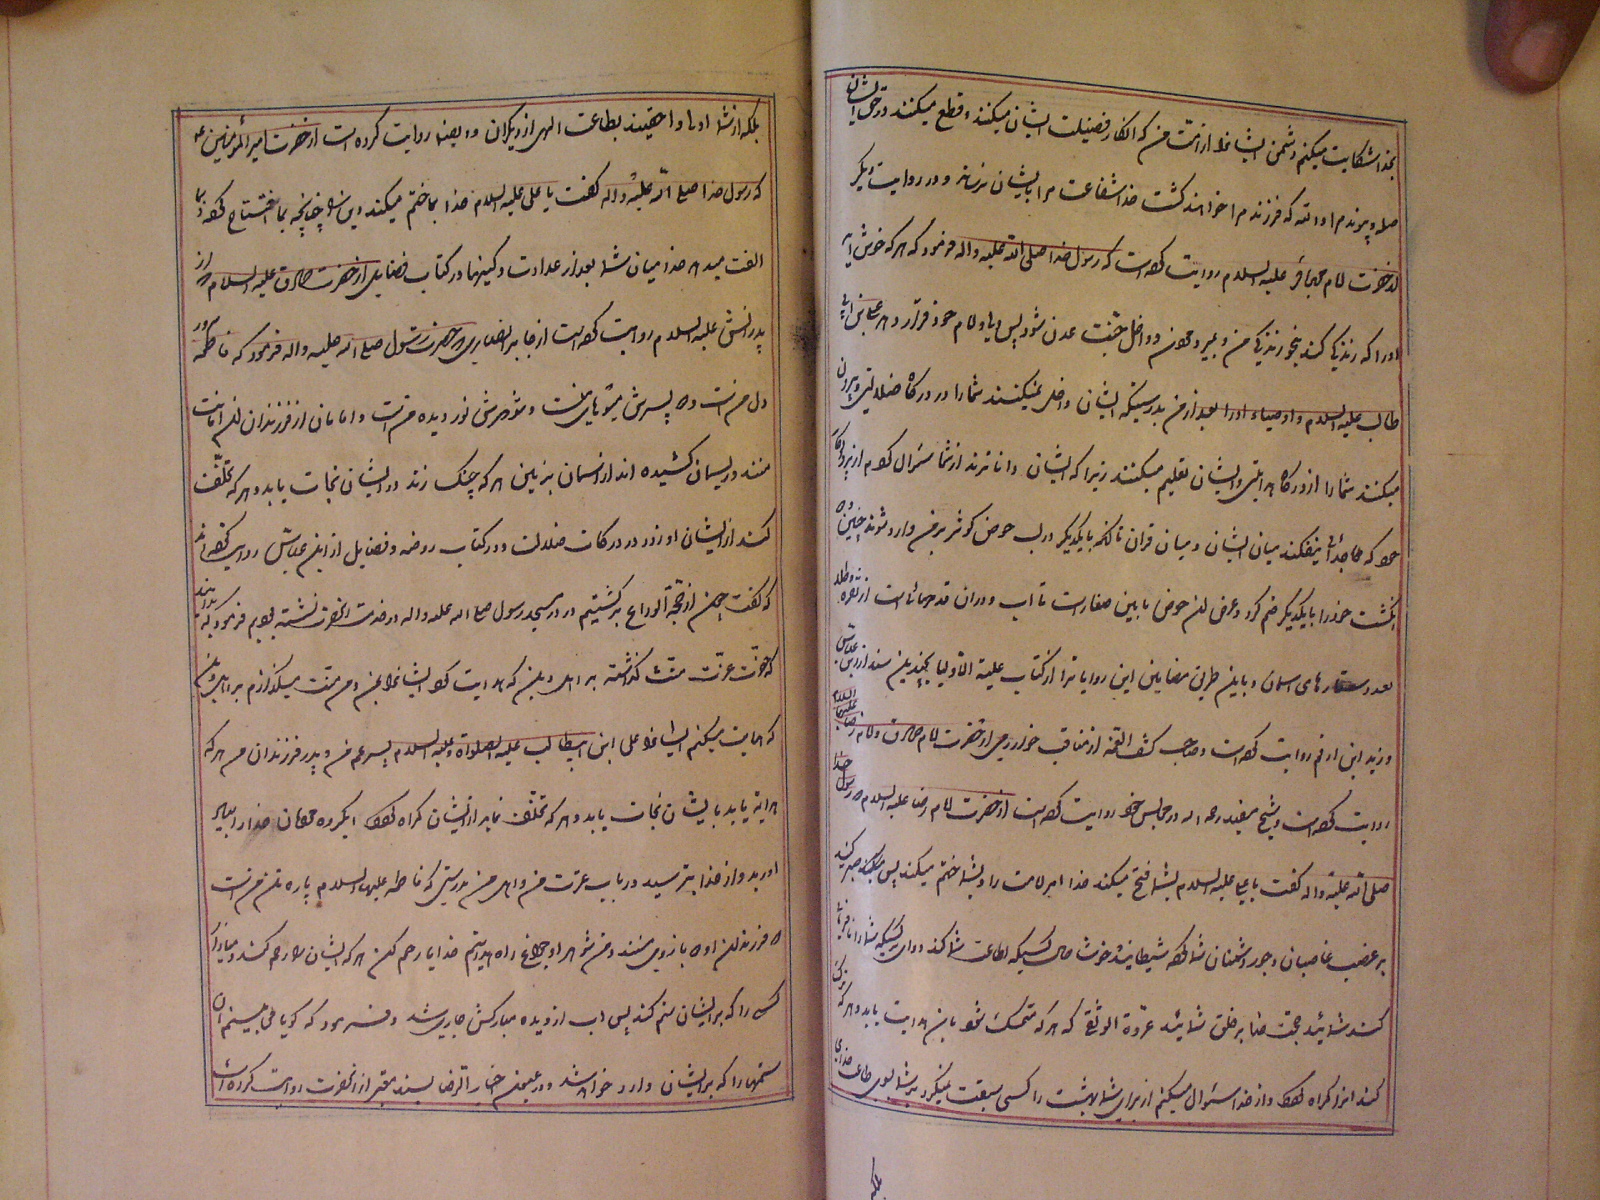 بخدا شکایت میکنم دشمن ایشانرا از امت من که انکار فضیلت ایشان میکنند و قطع میکنند در حق ایشان
صله و پیوندم او الله که فرزندم را خواهند کشت خدا شفاعت مرا بایشان نرساند و در روایت دیگر
از حضرت امام محمد باقر علیه السلام روایت کرده است که رسول خدا صلی الله علیه واله فرمود که هر که خوش آید
او را که زندگی کند بنحو زندگی من و بمیرد چون من و داخل جنت عدن شود پس
طالب علیه السلام و اوصیاء او را بعد از من بدرستیکه ایشان داخل نمیکنند شما را در درگاه ضلالتی و بیرون
نمیکنند شما را از درگاه هدایتی و ایشان تعلیم میکنند زیرا که ایشان داناترند از شما سؤال کردم از پروردگار
خود که جدائی نیفکند میان ایشان و میان قران تا آنکه با یکدیگر در لب حوض کوثر بر من وارد شوند چنین و دو
انگشت خود را با یکدیگر ضم کرد و عرض آن حوض ما بین صفا است تا آب و در ان قدحها است از نقره و طلا
بعدد ستارهای اسمان و باین طریق مضامین این روایات را از کتاب حلیة الاولیا بچندین سند از ابن عباس
و زید ابن ارقم روایت کرده است و صاحب کشف الغمه از مناقب خوارزمی از حضرت امام صادق و امام رضا علیهما السلام
روایت کرده است و شیخ مفید رحمه الله در مجالس خود روایت کرده است از حضرت امام رضا علیه السلام که رسول خدا
صلی الله علیه واله گفت یا علی علیه السلام بشما فتح میکند خدا امر امامت را و بشما ختم میکند پس صبر کنید
بر غضب غاصبان و جور دشمنان شما که شیطانند خوشا حال کسیکه اطاعت شما کند و وای بر کسیکه شما را نافرمانی
کند شمائید حجت خدا بر خلق شمائید عروة الوثقی که هر که متمسک شود بان هدایت یابد و هر که ترک
کند انرا گمراه گردد و از خدا سئوال میکنم از برای شما بهشت را کسی سبقت نمیگیرد بر شما بسوی طاعت خدای
بلکه
بلکه از شما اولی و احقیند بطاعت الهی از دیگران و ایضا روایت کرده است از حضرت امیر المؤمنین ع
که رسول خدا صلی الله علیه واله گفت یا علی علیه السلام خدا بما ختم میکند دین را چنانچه بما افتتاح کرد و بما
الفت میدهد خدا میان شما بعد از عداوت و کینها و در کتاب فضایل از حضرت صادق علیه السلام از
پدرانش علیه السلام روایت کرده است از جابر انصاری که حضرت رسول صلی الله علیه واله فرمود که فاطمه سرور
دل من است و دو پسرش میوهای منست و شوهرش نور دیده من است و امامان از فرزندان ان امانت
منند و ریسمان کشیده اند از اسمان بزمین هر که چنگ زند در ایشان نجات یابد و هر که تخلف
کند از ایشان او رود در درکات ضلالت و در کتاب روضه و فضایل از ابن عباس روایت کرده اند
که گفت چون از حجة الوداع برگشتیم در مسجد رسول صلی الله علیه واله در خدمت انحضرت نشسته بودیم فرمود که بدانید
که حقتعالی منت گذاشته بر اهل دین که هدایت کرد ایشانرا بمن و من منت میگذارم بر اهل دین
که هدایت میکنم ایشانرا بعلی ابن ابیطالب علیه الصلواة و علیه السلام پسر عم من و پدر فرزندان من هر که
هدایة یابد بایشان نجات یابد و هر که تخلف نماید از ایشان گمراه گردد ایگروه مردمان خدا را بیاد
اورید و از خدا بترسید در باب عترت من و اهل من بدرستی که فاطمه علیها السلام پاره تن من است
و فرزندان او دو بازوی منند و من و شوهر او چراغ راه هدایتیم خدایا رحم کن هر که ایشان را رحم کند و میامرز
کسی را که بر ایشان ستم کند پس اب از دیده مبارکش جاری شد و فرمود که گویا می بینم ان
ستمها را که بر ایشان وارد خواهد شد و در عیون اخبار الرضا بسند معتبر از انحضرت روایت کرده است